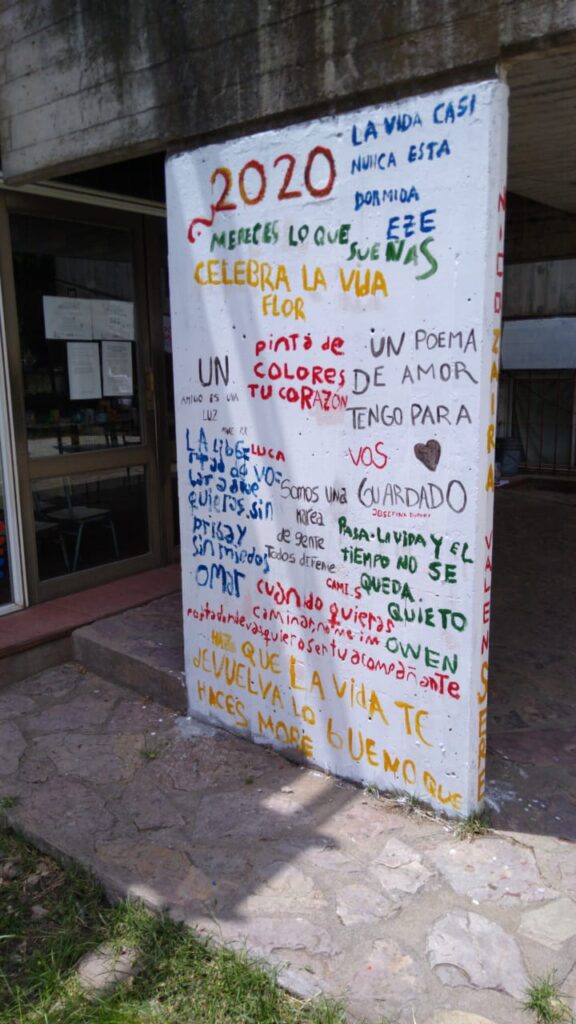 2020
LA VIDA CASI
NUNCA ESTA
DORMIDA
EZE
MERECES LO QUE
SUEÑAS
CELEBRA LA VIDA
FLOR
pinta de
COLORES
TU CORAZÓN
LUCA
UN
AMIGO ES UNA
LUZ
UN POEMA
DE AMOR
TENGO PARA
VOS
GUARDADO
JOSEFINA
LA liber
tad de
volar a
quieras. sin
prisa y
sin miedos
OMAR
Somos una
marea
de gente
Todos difente
CAMI.S
PASA. LA VIDA Y EL
TIEMPO NO SE
QUEDA.
QUIETO
OWEN
cuando quieras
caminar, no me im
porta donde vas quiero ser tu acompañante
QUE LA VIDA TE
dEVUELVA LO bUENO QUE
HACES MORE
NICO ZAIRA VALEN SERE